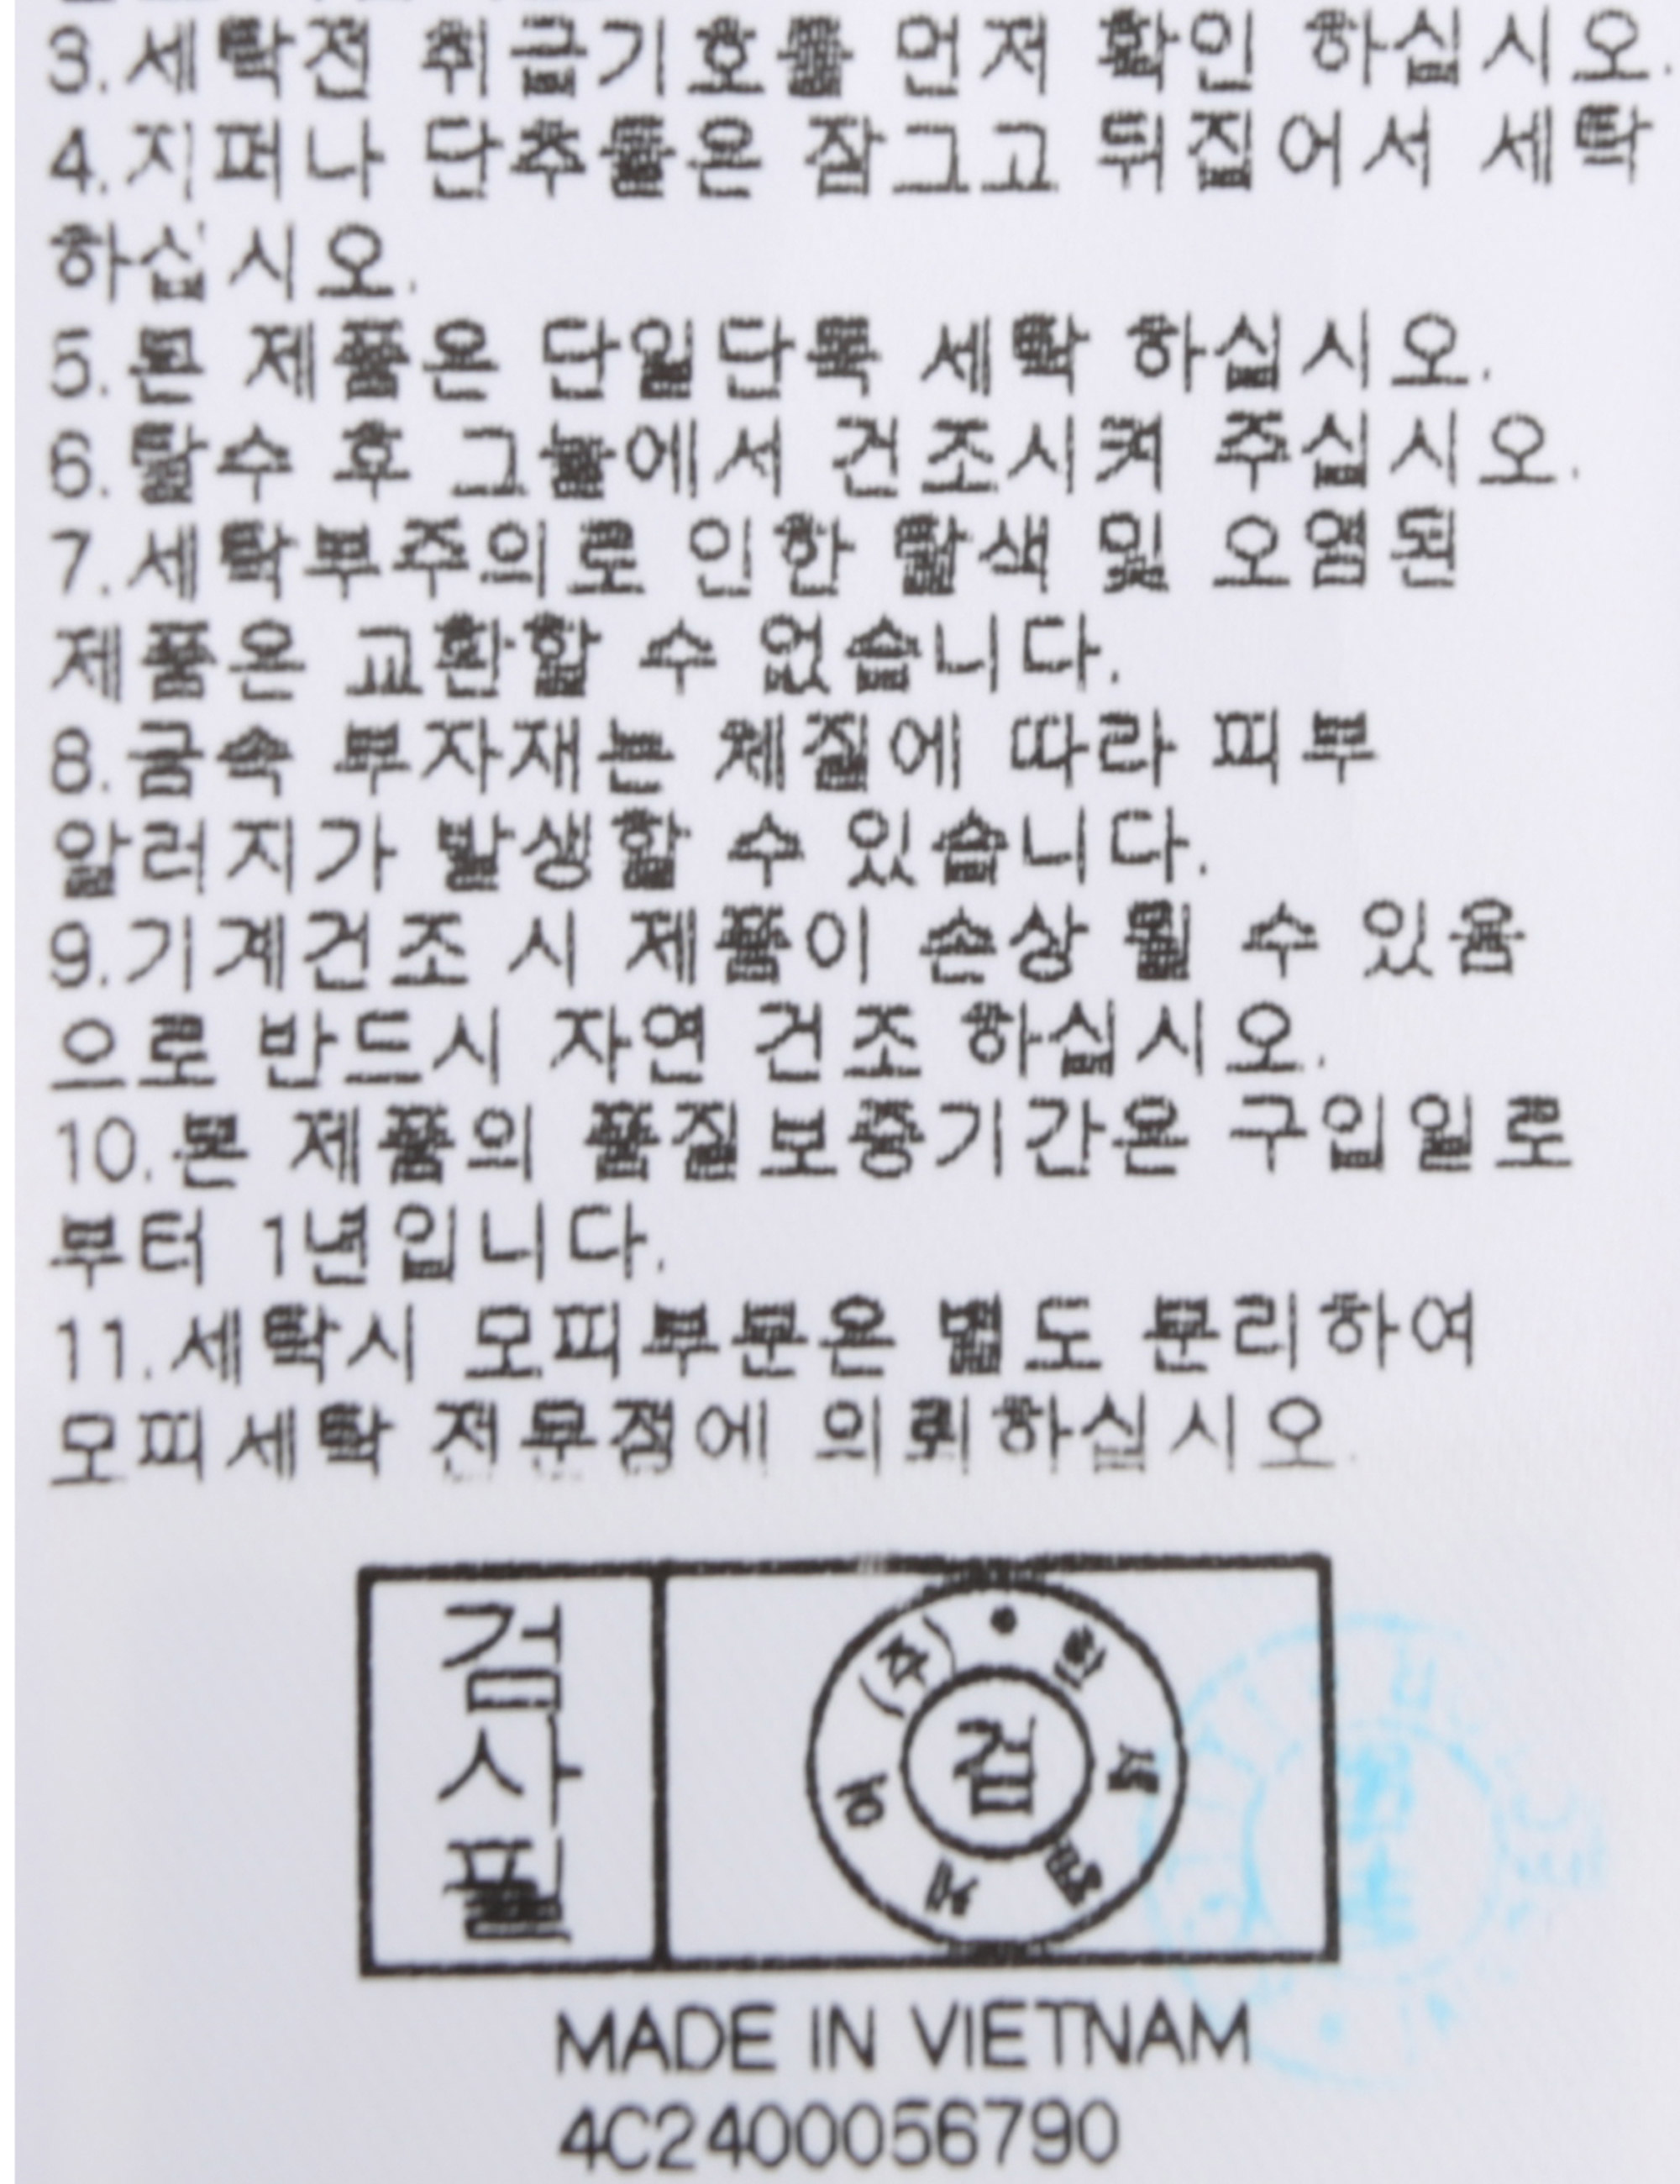 3.세탁전 취급기호를 먼저 확인 하십시오.
4.지퍼나 단추들은 잠그고 뒤집어서 세탁
하십시오.
5.본 제품은 단일단독 세탁 하십시오.
6.탈수 후 그늘에서 건조시켜 주십시오.
7.세탁부주의로 인한 탈색 및 오염된
제품은 교환할 수 없습니다.
8.금속 부자재는 체질에 따라 피부
알러지가 발생할 수 있습니다.
9.기계건조 시 제품이 손상 될 수 있음
으로 반드시 자연 건조 하십시오.
10.본 제품의 품질보증기간은 구입일로
부터 1년입니다.
11.세탁시 모피부분은 별도 분리하여
모피세탁 전문점에 의뢰하십시오.
검사필
(주)
검
MADE IN VIETNAM
4C2400056790